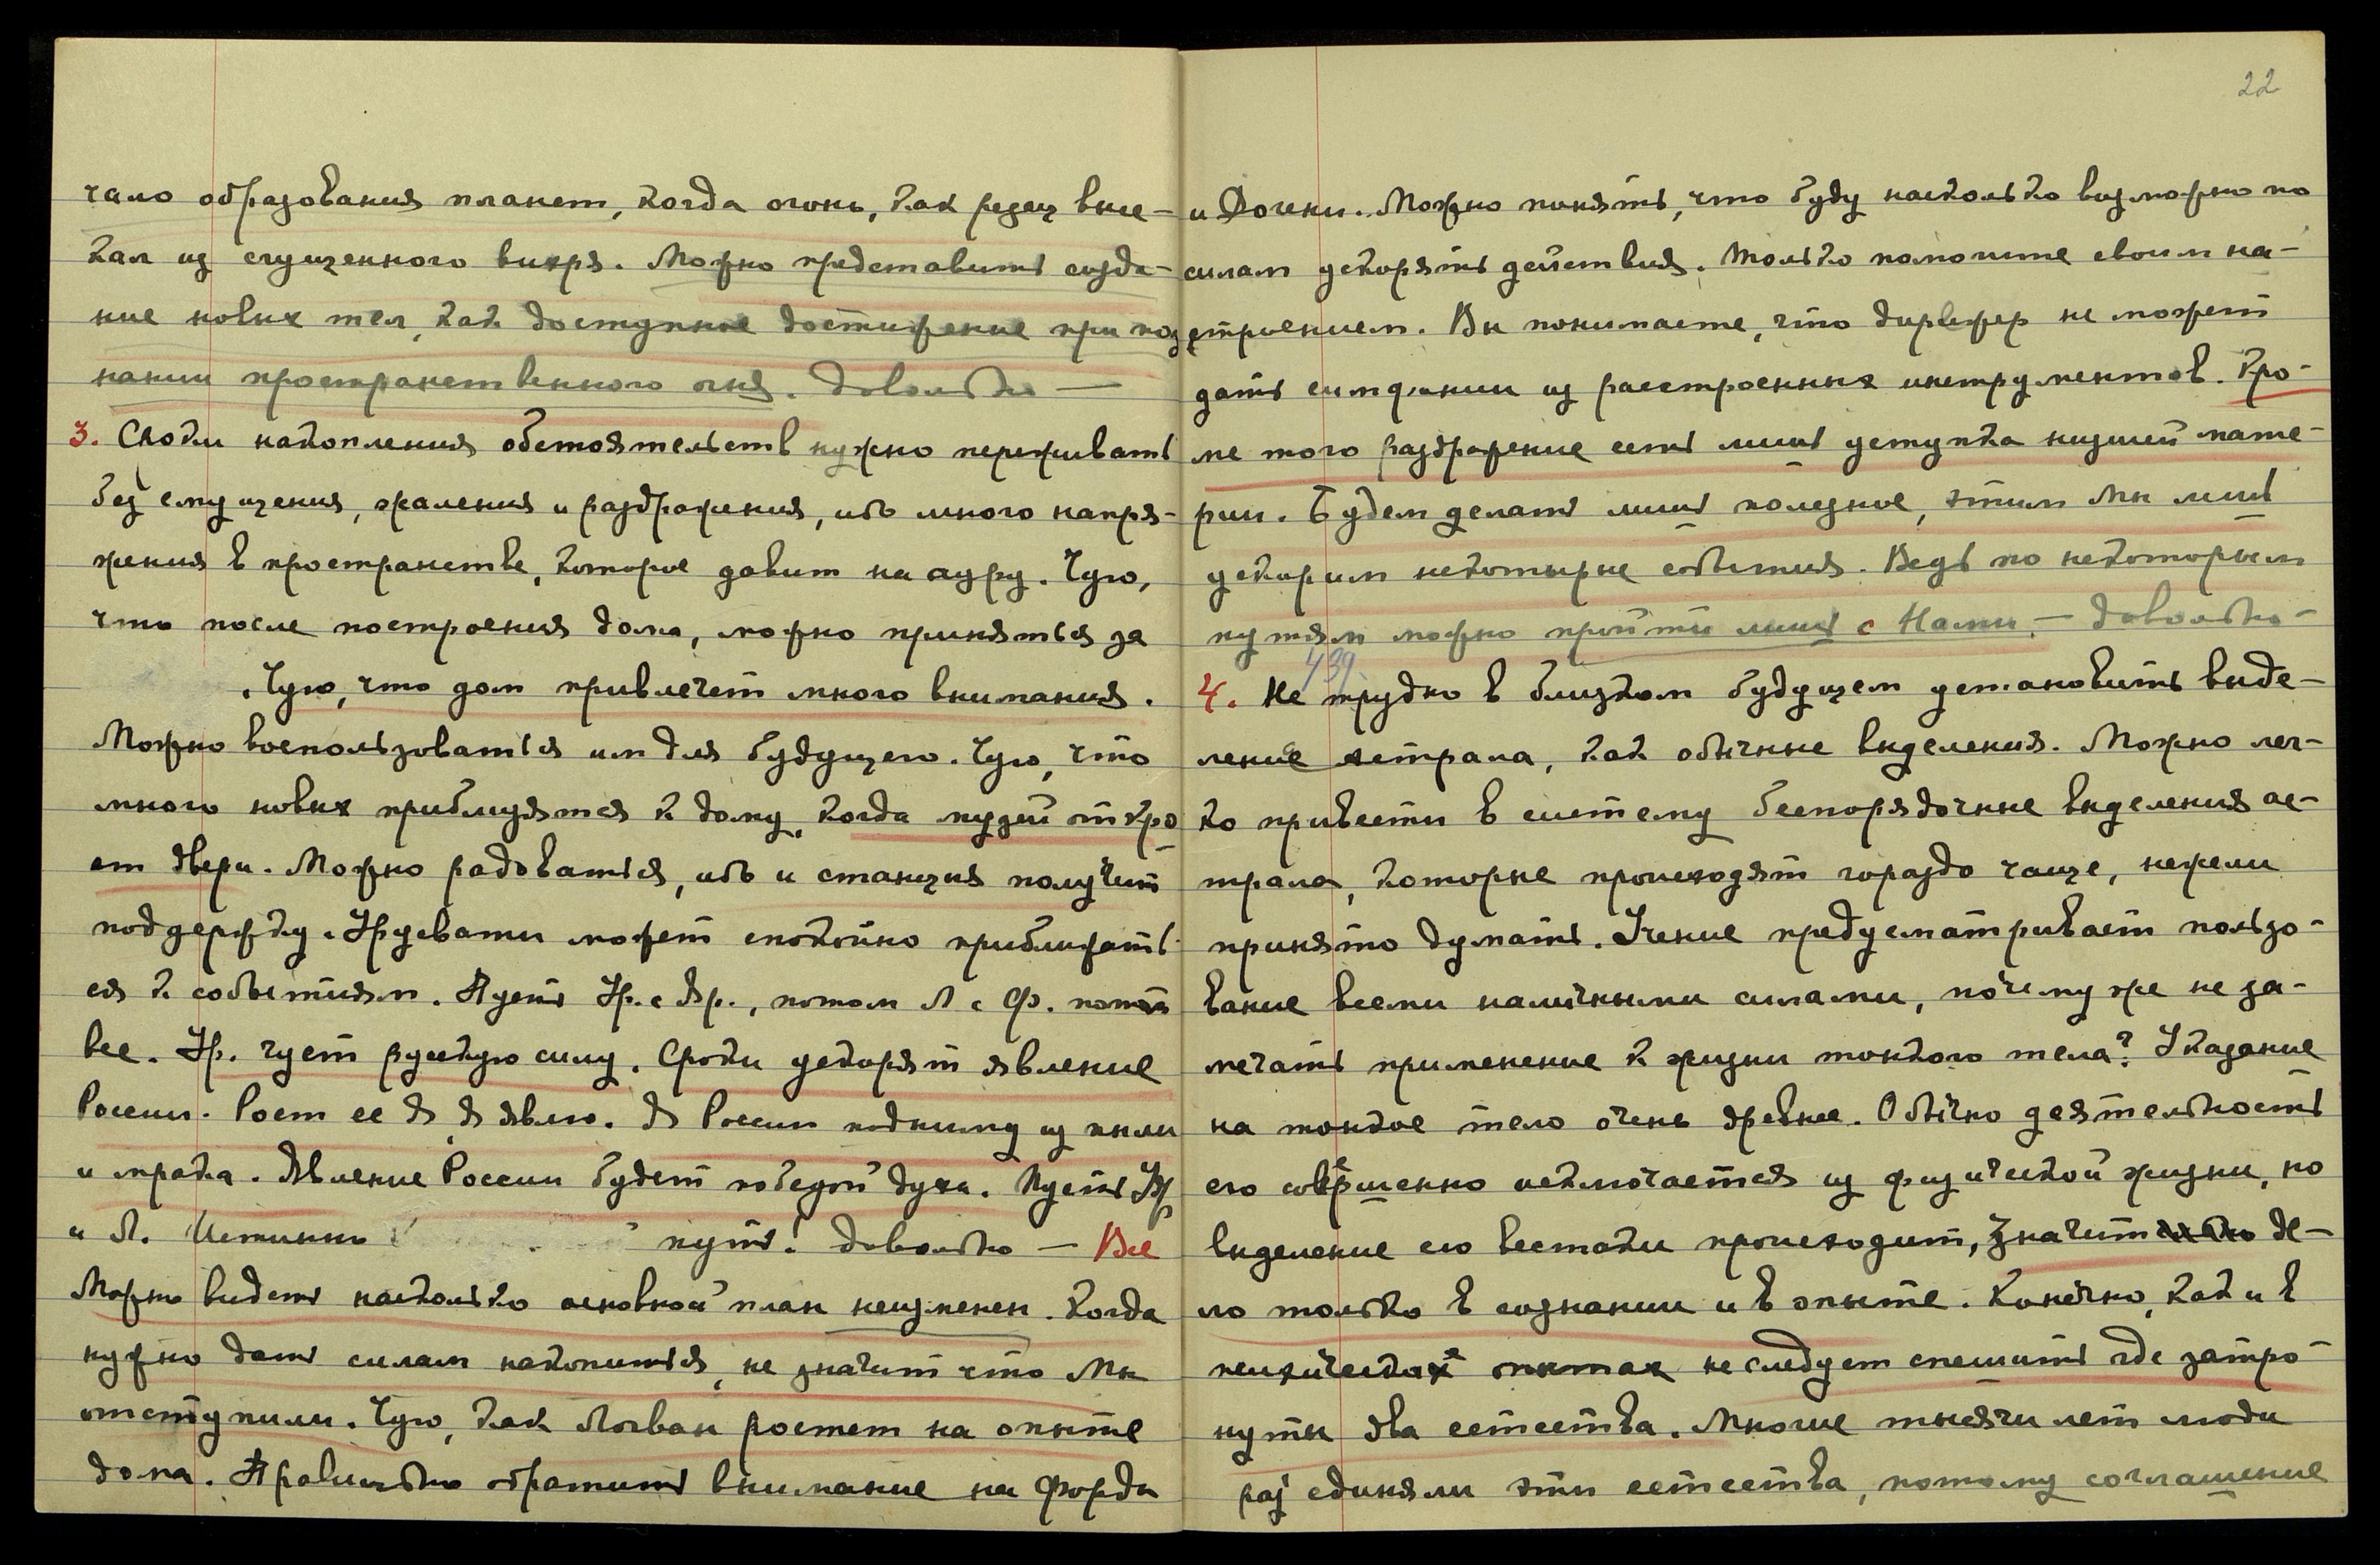 22
чало образования планет, когда огонь, как резец высе-
кал из сгущенного вихря. Можно представить созда-
ние новых тел, как доступное достижение при поз
нании пространственного огня. Довольно —
3. Сроки накопления обстоятельств нужно переживать
без смущения, жаления и раздражения, ибо много напря-
жения в пространстве, которое давит на ауру. Чую,
что после построения дома, можно приняться за
. Чую, что дом привлечет много внимания.
Можно воспользоваться им для будущего. Чую, что
много новых приблизятся к дому, когда музей откро
ет двери. Можно радоваться, ибо и станция получит
поддержку. Урусвати может спокойно приближать
ся к событиям. Пусть Ур. с Яр., потом Л с Ф. потом
все. Ур. чует русскую силу. Сроки ускорят явление
России. Рост ее Я, Я явлю. Я Россию подниму из пыли
и мрака. Явление России будет победой духа. Пусть Ур
и Л. Истинно путь! Довольно — Все
Можно видеть насколько основной план неизменен. Когда
нужно дать силам накопиться, не значит что Мы
отступили. Чую, как Логван ростет на опыте
дома. Правильно обратить внимание на Форда
и Дочени. Можно понять, что буду насколько возможно по
силам ускорять действия. Только помогите своим на-
строением. Вы понимаете, что дирижер не может
дать симфонии из расстроенных инструментов. Кро-
ме того раздражение есть лишь уступка низшей мате-
рии. Будем делать лишь полезное, этим Мы лишь
ускорим некоторые события. Ведь по некоторым
путям можно пройти лишь с Нами. — Довольно —
439.
4. Не трудно в близком будущем установить выде-
ление астрала, как обычные выделения. Можно лег-
ко привести в систему беспорядочные выделения ас-
трала, которые происходят гораздо чаще, нежели
принято думать. Учение предусматривает пользо-
вание всеми наличными силами, почему же не за-
мечать применение к жизни тонкого тела? Указание
на тонкое тело очень древнее. Обычно деятельность
его совершенно исключается из физической жизни, но
выделение его все таки происходит, значит де-
ло только в сознании и в опыте. Конечно, как и в
психических опытах не следует спешить где затро-
нуты два естества. Многие тысячи лет люди
разъединяли эти естества, потому соглашение